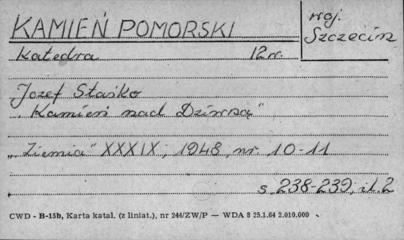 KAMIEŃ POMORSKI
woj.
Szczecin
Katedra 12w.
Józef Staśko
„Kamień nad Dziwną"
„Ziemia" XXXIX, 1948, nr. 10-11
s. 238-239, il. 2
CWD - B-15b, Karta katal. (z liniat.), nr 244/ZW/P — WDA 8 25.1.64 2.010.000